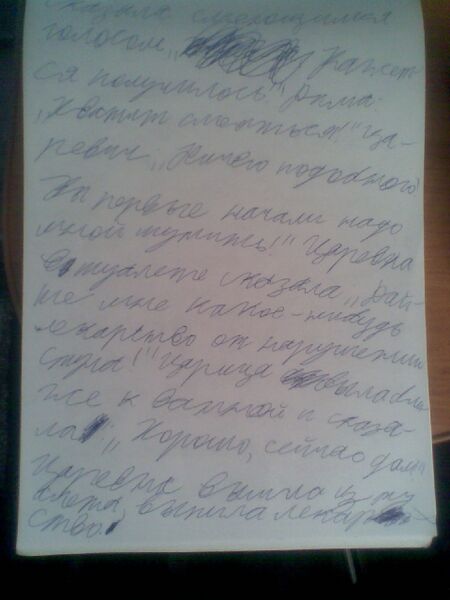 сказала смеющимся
голосом, „ Кажет-
ся получилось!" Дама-
„Хватит смеяться!" Ца-
ревич „Ничего подобного!
Вы первые начали надо
мной шутить!" Царевна
в туалете сказала „Дай-
те мне какое-нибудь
лекарство от нарушения
стула!" Царица
же к ванной и сказа-
ла: „Хорошо, сейчас дам"
Царевна вышла из ту
алета, выпила лекар
ство.